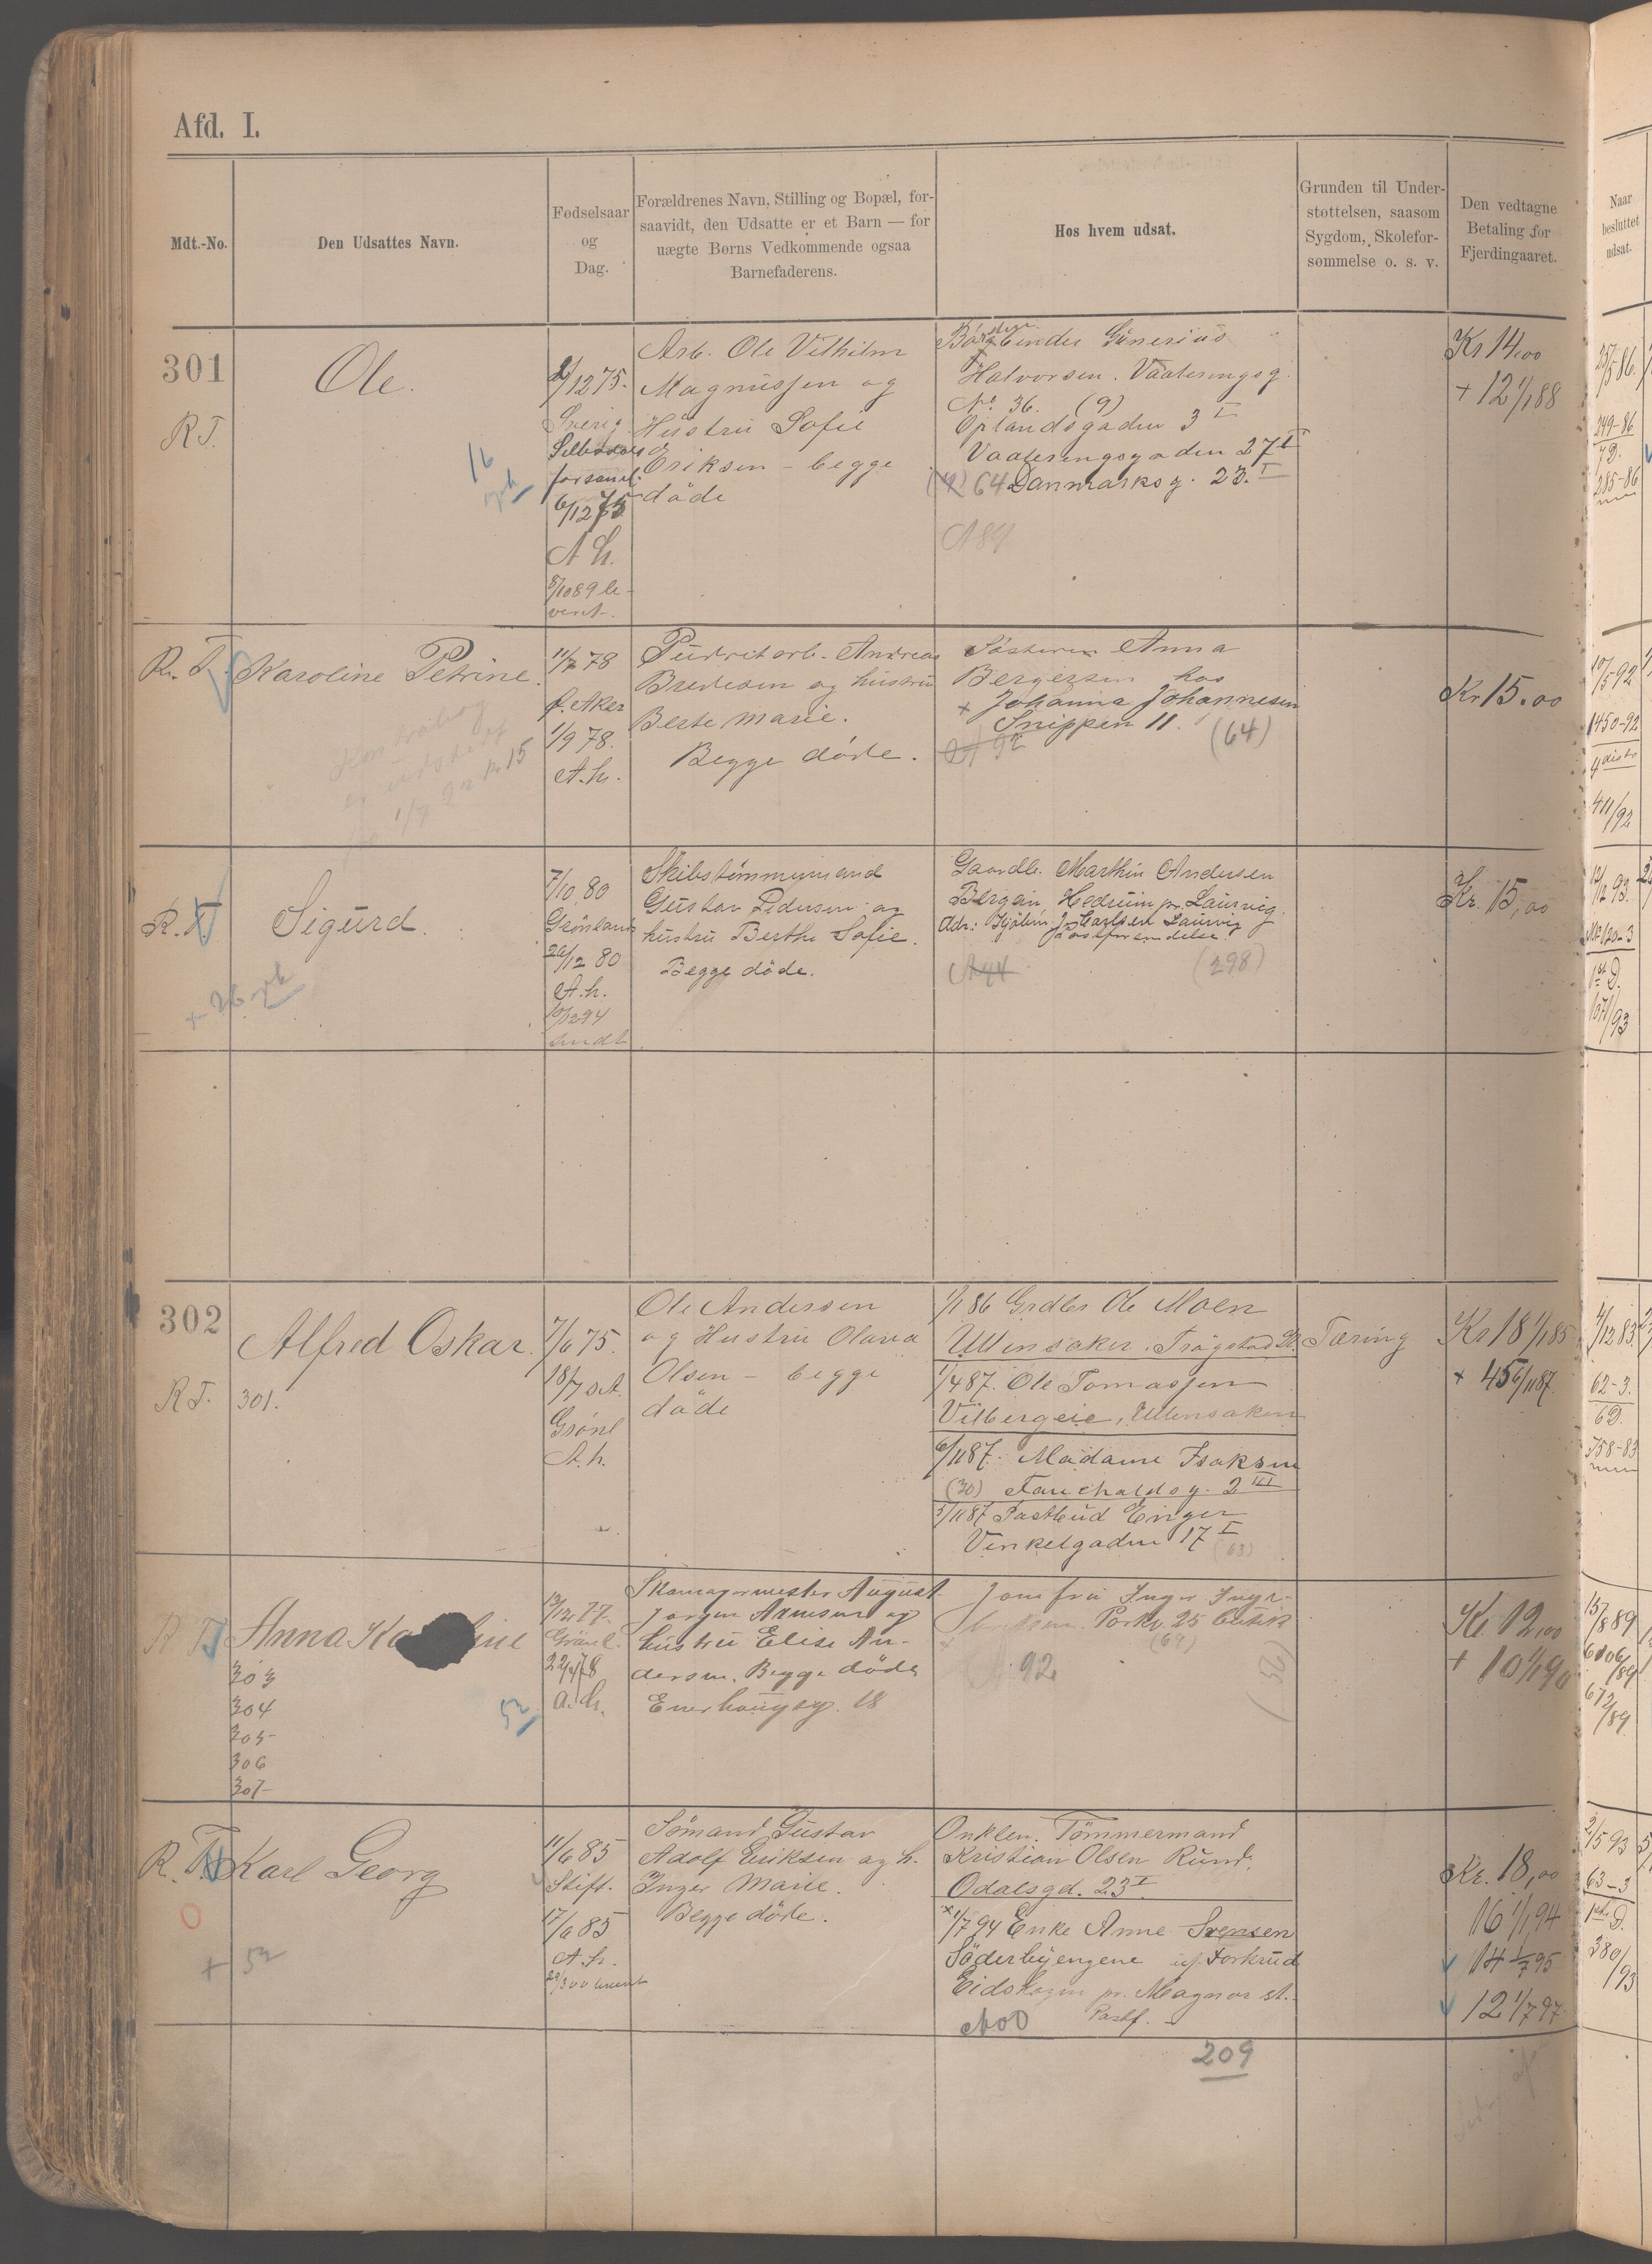 Afd. I.
Mdt.-No.
Den Udsattes Navn.
Fødselsaar
og
Dag.
Forældrenes Navn, Stilling og Bopæl, for-
saavidt, den Udsatte er et Barn — for
uægte Børns Vedkommende ogsaa
Barnefaderens.
Hos hvem udsat.
Grunden til Under-
støttelsen, saasom
Sygdom, Skolefor-
sømmelse o. s. v.
Den vedtagne
Betaling for
Fjerdingaaret.
Naar
besluttet
udsat.
301
R T.
Ole.
16
/12 75.
Sverig
6/12 75
A h.
5/10 89 le-
veret.
Arb. Ole Vilhilm
Magnussen og
Hustru Sofie
Eriksen - begge
døde
Børstebinder Gunerius
Halvorsen. Vaalerengsg.
No 36. (9)
Oplandsgaden 3 I
Vaalerengsgaden 27
64 Danmarksg. 23. I
A 89
Kr 14,00
+ 12 1/1 88
25/5 86.
249-86
7D.
285-86
R. T.
Karoline Petrine.
1/7 92 Kr 15
11/7 78
f. Aker
1/9 78.
A. h.
Andreas
Bredesen og hustru
Berte Marie.
Begge døde.
Søsteren Anna
Bergersen hos
+ Johanna Johannesen
Snippen 11. (64)
92
Kr 15.00
10/5 92
1450-92
4 distr
411/92
R. T
Sigurd.
+ 26
7/10 80
Grønland
26/12 80
A. h.
10/12 94
sendt
Skibstømmermand
Gustav Pedersen og
hustru Berthe Sofie.
Begge døde.
Gaardbr. Marthin Andersen
Bergan Hedrum pr. Laurvig
Adr.: Kjøbm. J. Carlsen Laurvig
Postforsendelse.
(298)
Kr. 15,00
12/12 93.
1ste D.
1071/93
302
R T.
Alfred Oskar.
301.
7/6 75.
18/7 s.A.
Grønl
A. h.
Ole Andersen
og Hustru Olava
Olsen - begge
døde
1/1 86 Grdbr Ole Moen
Ullensaker. Trøgstad St.
1/4 87. Ole Tomassen
Vilbergeie, Ullensaker
6/11 87. Madame Isaksen
(30) Fauchaldsg. 2 III
5/11 87 Postbud Einger
Vinkelgaden 17 I
(63)
Tæring
Kr 18 1/1 85
+ 45 6/11 87.
4/12 83.
62-3.
6D.
758-83
R T
Anna Ka ine
303
304
305
306
307
52
13/12 77.
Grønl.
22/4 78
A. h.
Skomagermester August
Jørgen Arnesen og
hustru Elise An-
dersen. Begge døde
Enerhougsg. 18
Jomfru Inger Ingv-
Porkv. 25 Butik
(69)
92
(52)
Kr. 12,00
+ 10 1/1 90
15/8 89
6006/89
672/89
R. T.
Karl Georg
0
+ 52
11/6 85
Stift.
17/6 85
A. h.
Sømand Gustav
Adolf Eriksen og h.
Inger Marie.
Begge døde.
Onklen. Tømmermand
Kristian Olsen Rund.
Odalsgd. 23 I.
x 1/7 94 Enke Anne Svensen
Søderbyengene u/ Torkrud
Eidskogen pr. Magnor st.
Postf.
A 00
209
Kr. 18,00
16 1/1 94
14 1/7 95
12 1/7 97
2/5 93
63-3
1ste D.
380/93